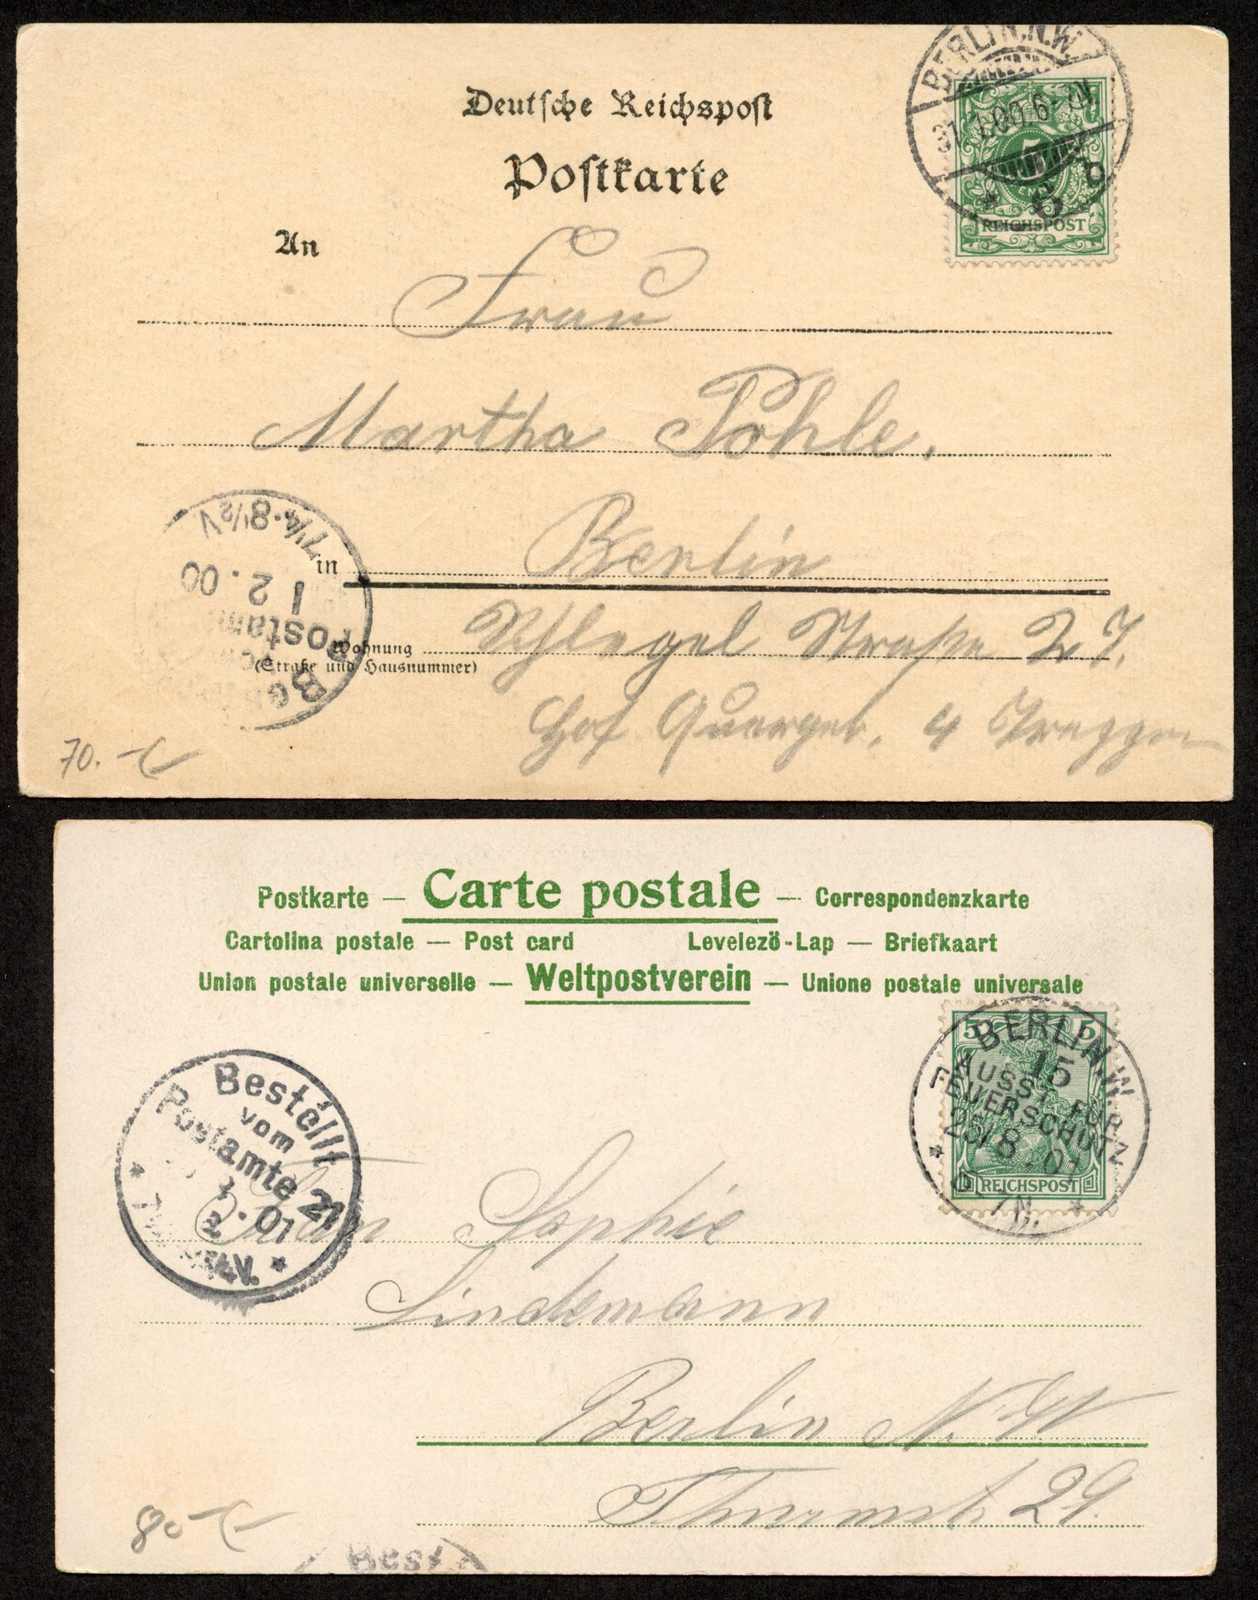 Deutsche Reichspost
Postkarte
BERLIN.N.W.
31.1.00.6-7N.
* 6 b
5
REICHSPOST
An
Frau
Martha Pohle.
in Berlin
Wohnung
(Straße und Hausnummer)
Schlegel Straße 27.
Hof Quergeb. 4 Treppen
7¼-8½V
1 2.00
Postamt
70.-
Postkarte — Carte postale — Correspondenzkarte
Cartolina postale — Post card Levelező-Lap — Briefkaart
Union postale universelle — Weltpostverein — Unione postale universale
5 5
BERLIN.W.
15
AUSST. FÜR
FEUERSCHUTZ
23/8.01
REICHSPOST
Bestellt
vom
Postamte 21
Frau Sophie
Lindemann
Berlin N.W
Thurmstr. 29.
80-
Best